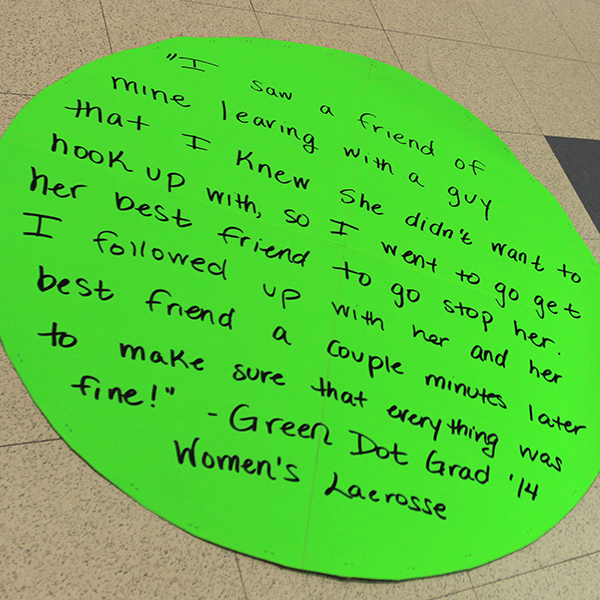 "I saw a friend of
mine leaving with a guy
that I knew she didn't want to
hook up with, so I went to go get
her best friend to go stop her.
I followed up with her and her
best friend a couple minutes later
to make sure that everything was
fine!" - Green Dot Grad '14
Women's Lacrosse